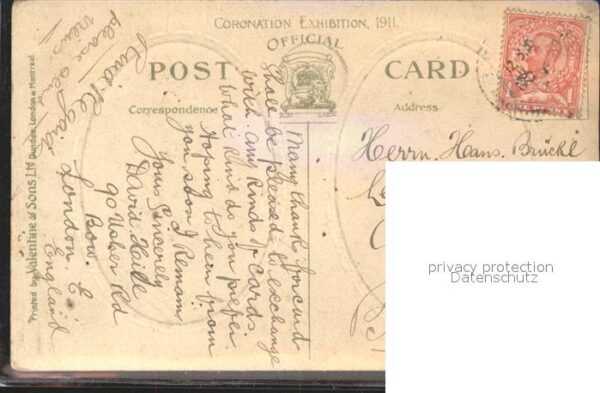 CORONATION EXHIBITION, 1911.
OFFICIAL
POST CARD
Correspondence
Address
Printed by Valentine & Sons Ltd Dundee, London & Montreal
please
Many thanks for card
Shall be pleased to exchange
with any kinds of cards
what kind do you prefer
Hoping to hear from
you soon I Remain
Yours Sincerely
David
90 Usher Rd
Bow. E
London
England
Herrn. Hans. Brückl
privacy protection
Datenschutz